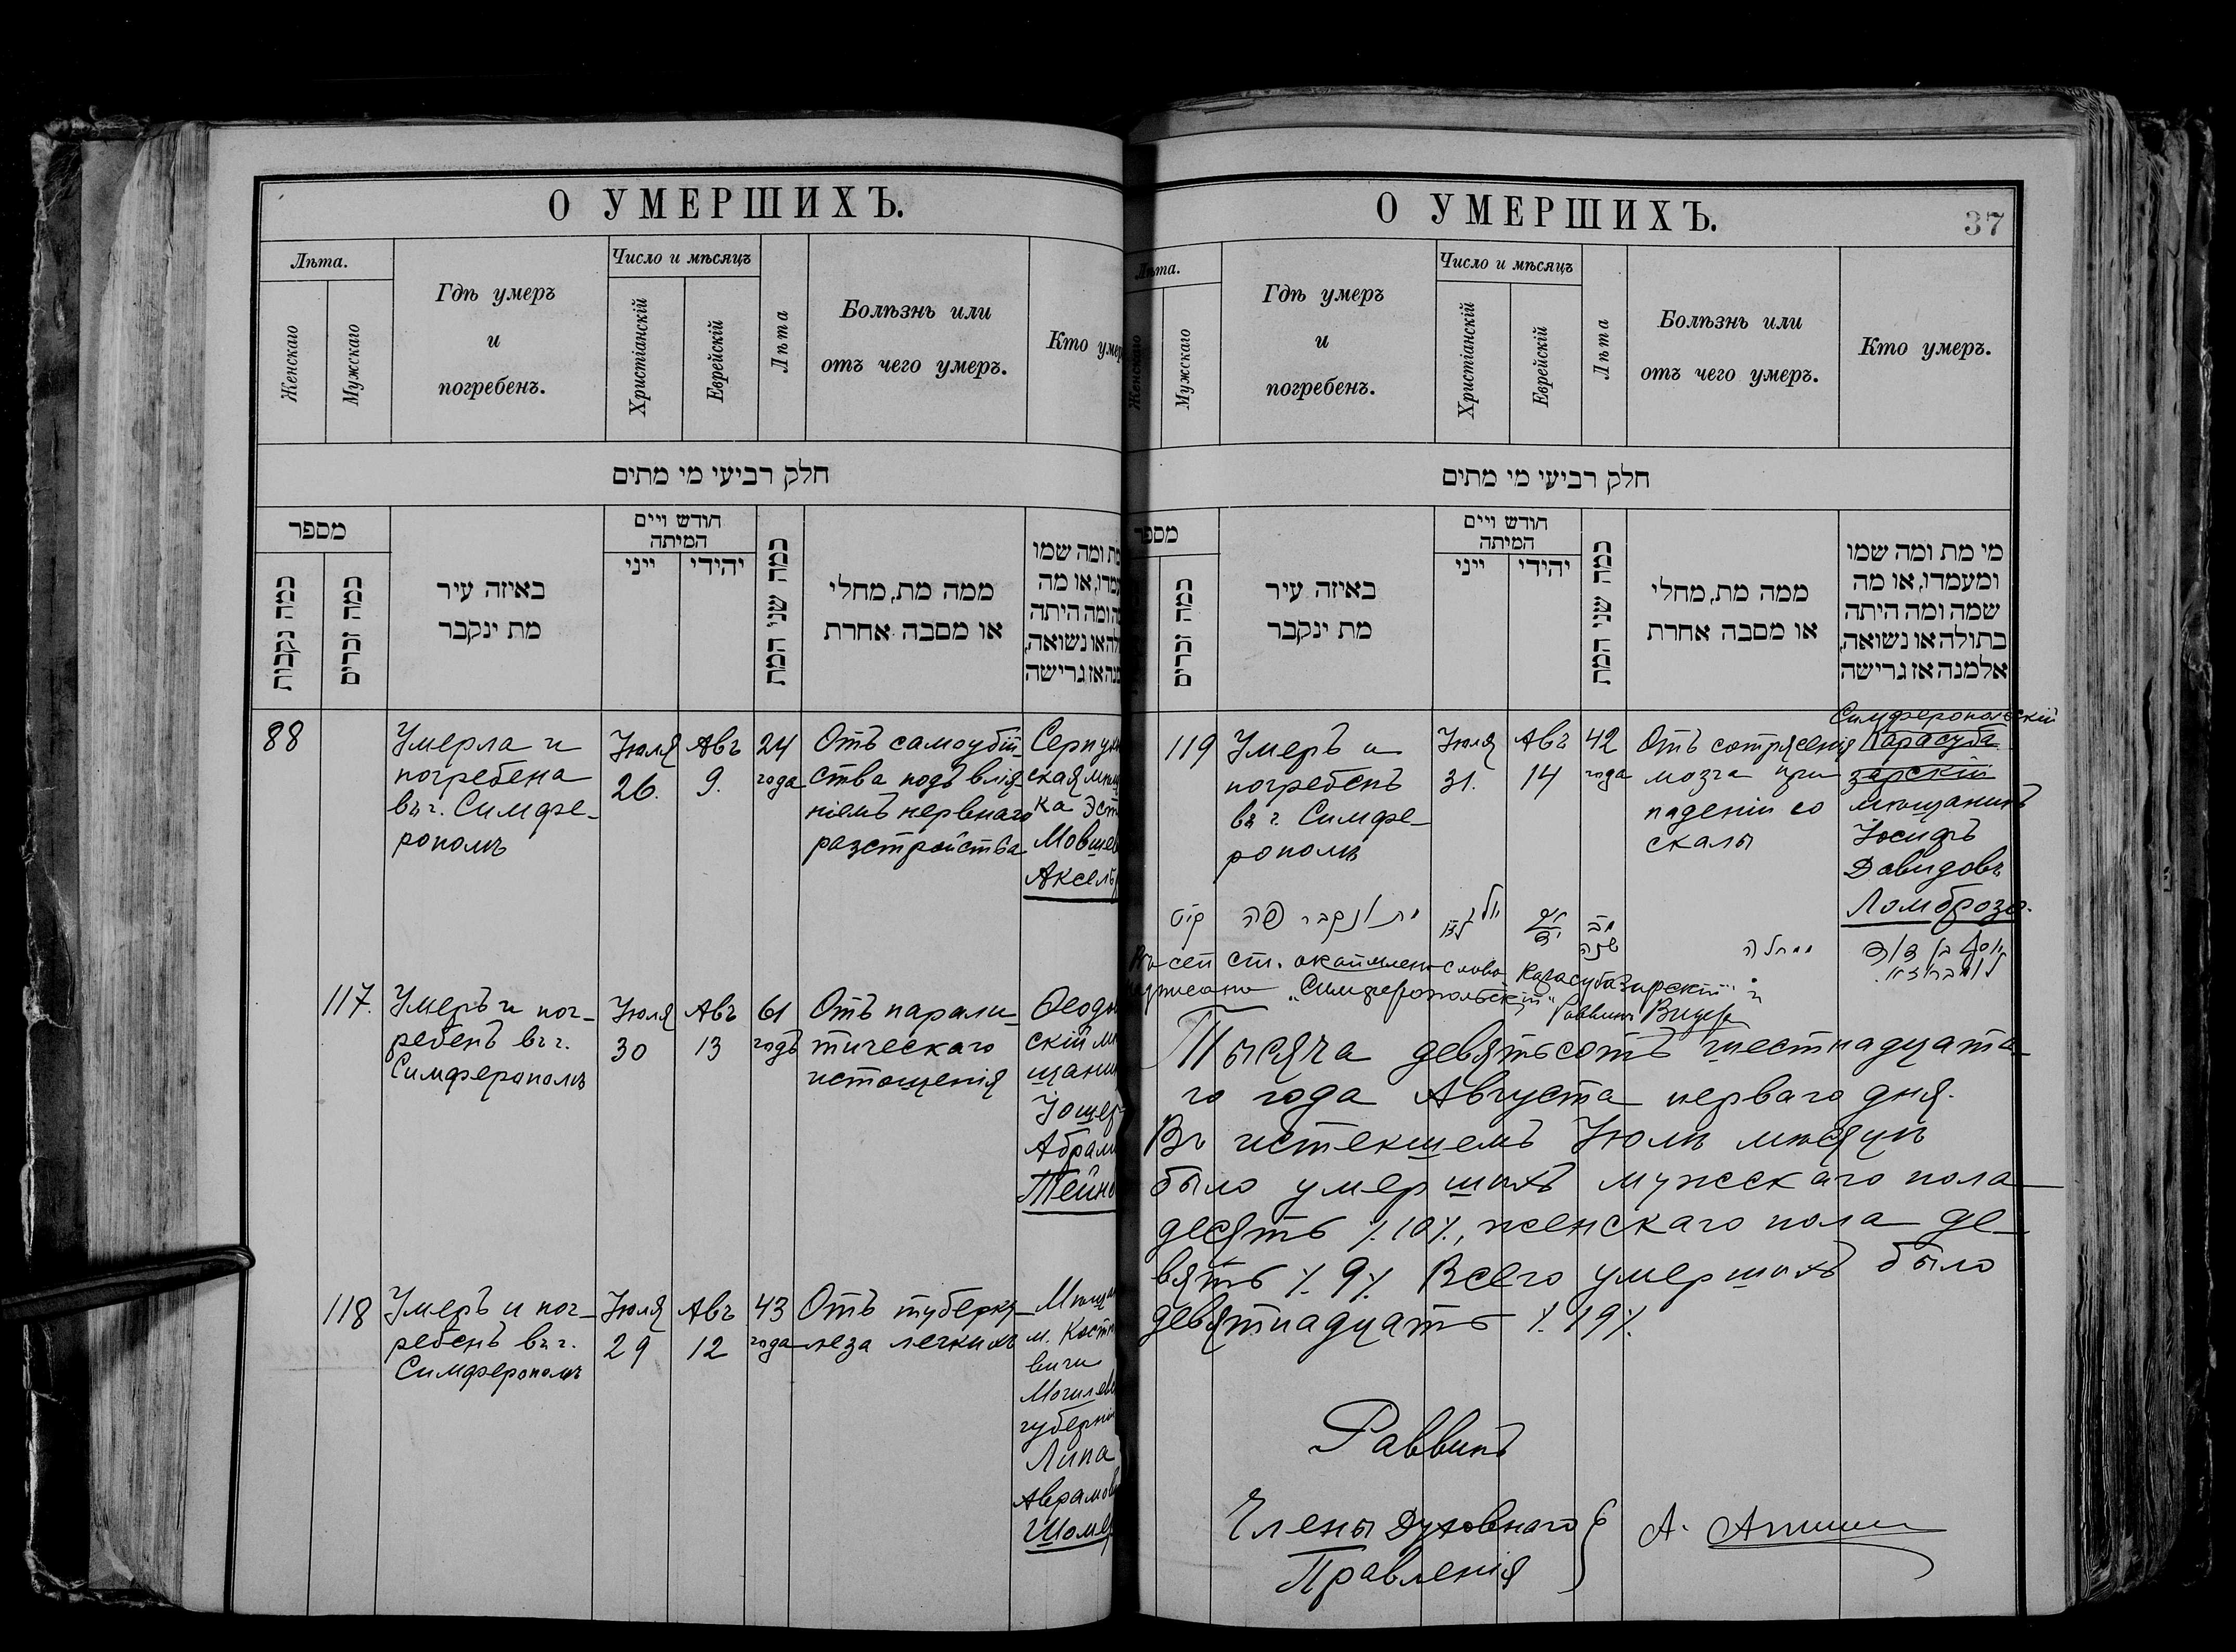 О УМЕРШИХЪ.
Лѣта.
Женскаго
Мужскаго
Гдѣ умеръ
и
погребенъ.
Число и мѣсяцъ
Христіанскій
Еврейскій
Лѣта
Болѣзнь или
отъ чего умеръ.
Кто умер
חלק רביעי מי מתים
מספר
כמה נקבות
כמה זכרים
באיזה עיר
מת ינקבר
חודש ויים
המיתה
ייני
יהידי
כמה שני המת
ממה מת, מחלי
או מסבה אחרת
מת ומה שמו
עמדו, או מה
ה ומה היתה
לה או נשואה,
מנה אז גרישה
88
Умерла и
погребена
въ г. Симфе-
рополѣ
Іюля
26.
Авъ
9.
24
года
Отъ самоубій
ства подъ влія-
ніемъ нервнаго
разстройства
Серпу
ская мѣщ
ка Эст
Мовшев
Аксель
117.
Умеръ и пог-
ребенъ въ г.
Симферополѣ
Іюля
30
Авъ
13
61
годъ
Отъ парали-
тическаго
истощенія
Ѳеодо
скій мѣ
щанин
Іошер
Абрам
Тейн
118
Умеръ и пог-
ребенъ въ г.
Симферополѣ
Іюля
29
Авъ
12
43
года
Отъ туберку-
леза легкихъ
Мѣща
м. Костю
вичи
Могилев
губерніи
Липа
Аврамов
Шомер
О УМЕРШИХЪ.
37
Лѣта.
Женскаго
Мужскаго
Гдѣ умеръ
и
погребенъ.
Число и мѣсяцъ
Христіанскій
Еврейскій
Лѣта
Болѣзнь или
отъ чего умеръ.
Кто умеръ.
חלק רביעי מי מתים
מספר
כמה זכרים
באיזה עיר
מת ינקבר
חודש ויים
המיתה
ייני
יהידי
כמה שני המת
ממה מת, מחלי
או מסבה אחרת
מי מת ומה שמו
ומעמדו, או מה
שמה ומה היתה
בתולה או נשואה,
אלמנה אז גרישה
119
Умеръ и
погребенъ
въ г. Симфе-
рополѣ
Іюля
31.
Авъ
14
42
года
Отъ сотрясенія
мозга при
паденіи со
скалы
Симферопольскій
Карасуба
зарскій
мѣщанинъ
Іосифъ
Давидовъ
Ломброзо.
קיט
מת ונקבר פה
מב
שנה
ממחלה
יוסף בן דוד
לומברוזו.
Въ сей ст. окаймлено слово „Карасубазарскій" и
написано „Симферопольскій"
Раввинъ
Тысяча девятьсотъ шестнадцата-
го года Августа перваго дня.
Въ истекшемъ Іюлѣ мѣсяцѣ
было умершихъ мужскаго пола
десять ⁒ 10 ⁒, женскаго пола де-
вять ⁒ 9 ⁒ Всего умершихъ было
девятнадцать ⁒ 19 ⁒
Раввинъ
Члены Духовнаго
Правленія
А.